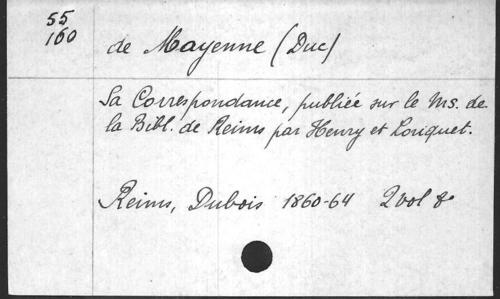 55
160
de Mayenne (Duc)
Sa Correspondance, publiée sur le Ms. de
la Bibl. de Reims par Henry et Loriquet.
Reims, Dubois 1860-64 2 vol 8°